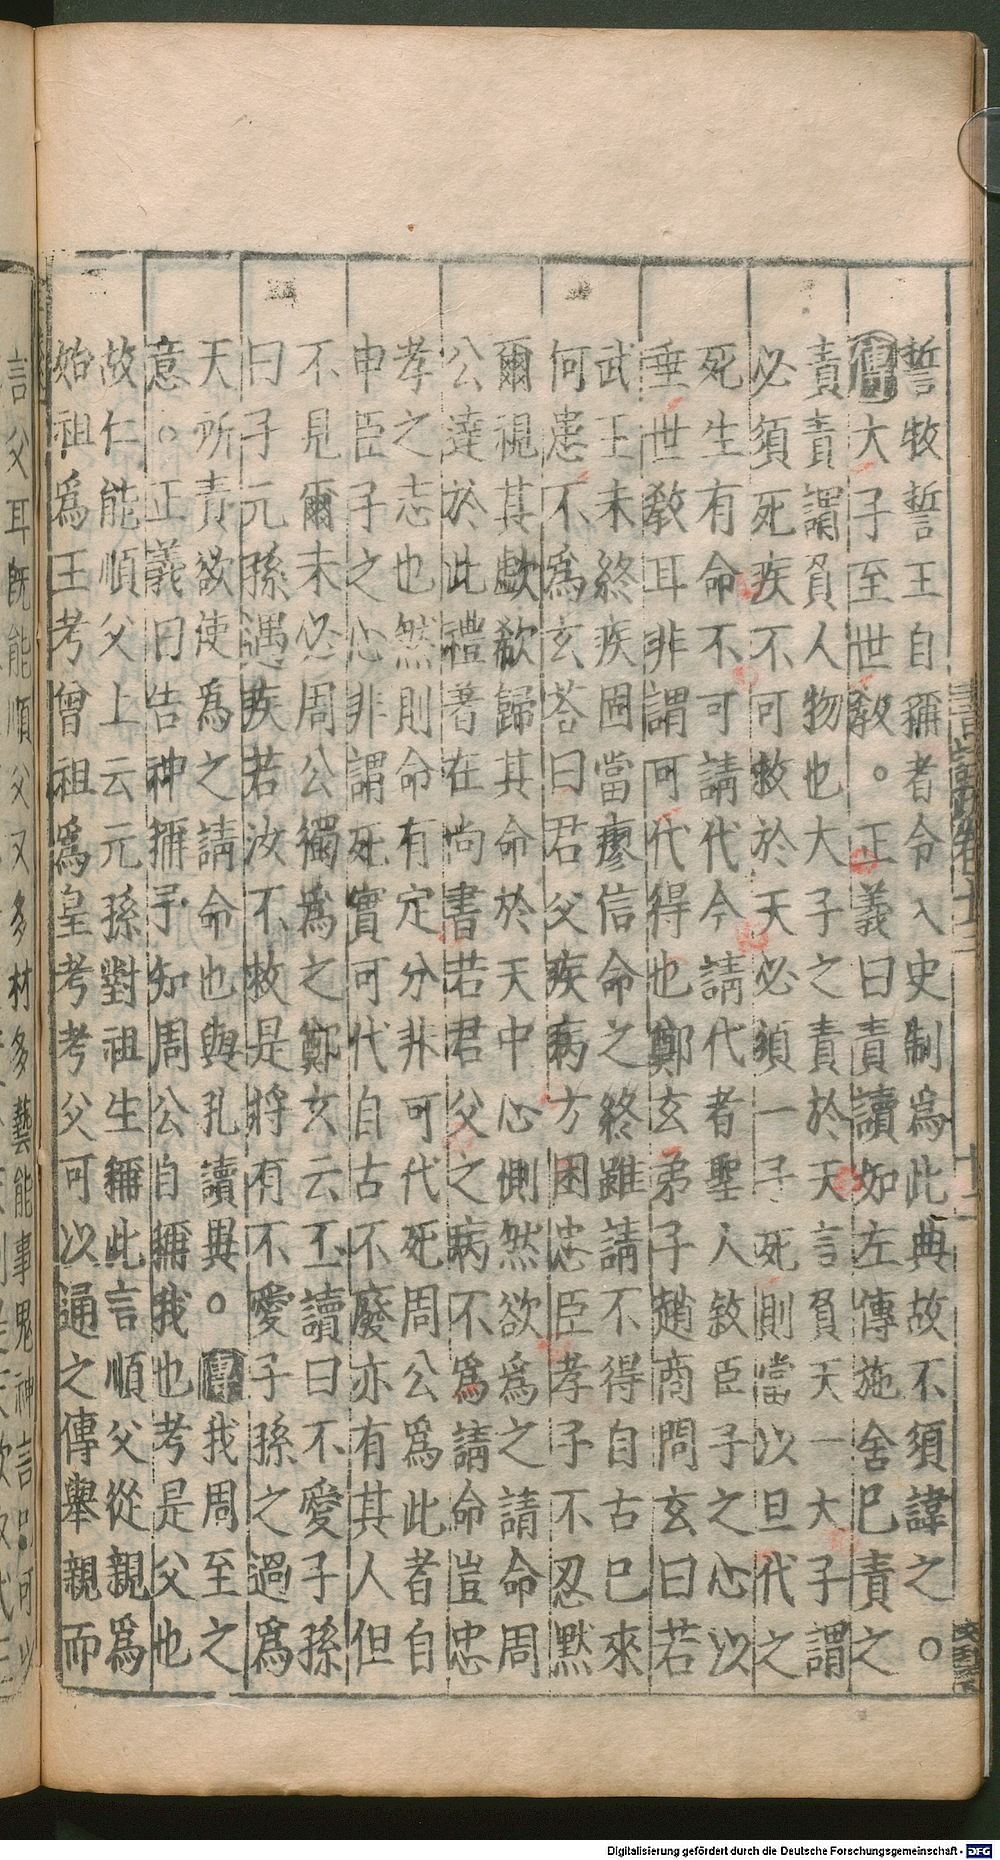 誓牧誓王自稱者令入史制爲此典故不須諱之。
傳大子至世教。正義曰責讀如左傳施舍已責之
責責謂負人物也大子之責於天言負天一大子謂
必須死疾不可救於天必須一子死則當以旦代之
死生有命不可請代今請代者聖人敘臣子之心以
垂世教耳非謂可代得也鄭玄弟子趙商問玄曰若
武王未終疾固當瘳信命之終雖請不得自古已來
何患不爲玄荅曰君父疾病方困忠臣孝子不忍默
爾視其歔欷歸其命於天中心惻然欲爲之請命周
公達於此禮著在尚書若君父之病不爲請命豈忠
孝之志也然則命有定分非可代死周公爲此者自
申臣子之心非謂死實可代自古不廢亦有其人但
不見爾未必周公獨爲之鄭玄云丕讀曰不愛子孫
曰子元孫遇疾若汝不救是將有不愛子孫之過爲
天所責欲使爲之請命也與孔讀異。傳我周至之
意。正義曰告神稱予知周公自稱我也考是父也
故仁能順父上云元孫對祖生稱此言順父從親爲
始祖爲王考曾祖爲皇考考父可以通之傳舉親而
言父耳旣能順父又多材多藝能事鬼神言己可以
Digitalisierung gefördert durch die Deutsche Forschungsgemeinschaft - DFG